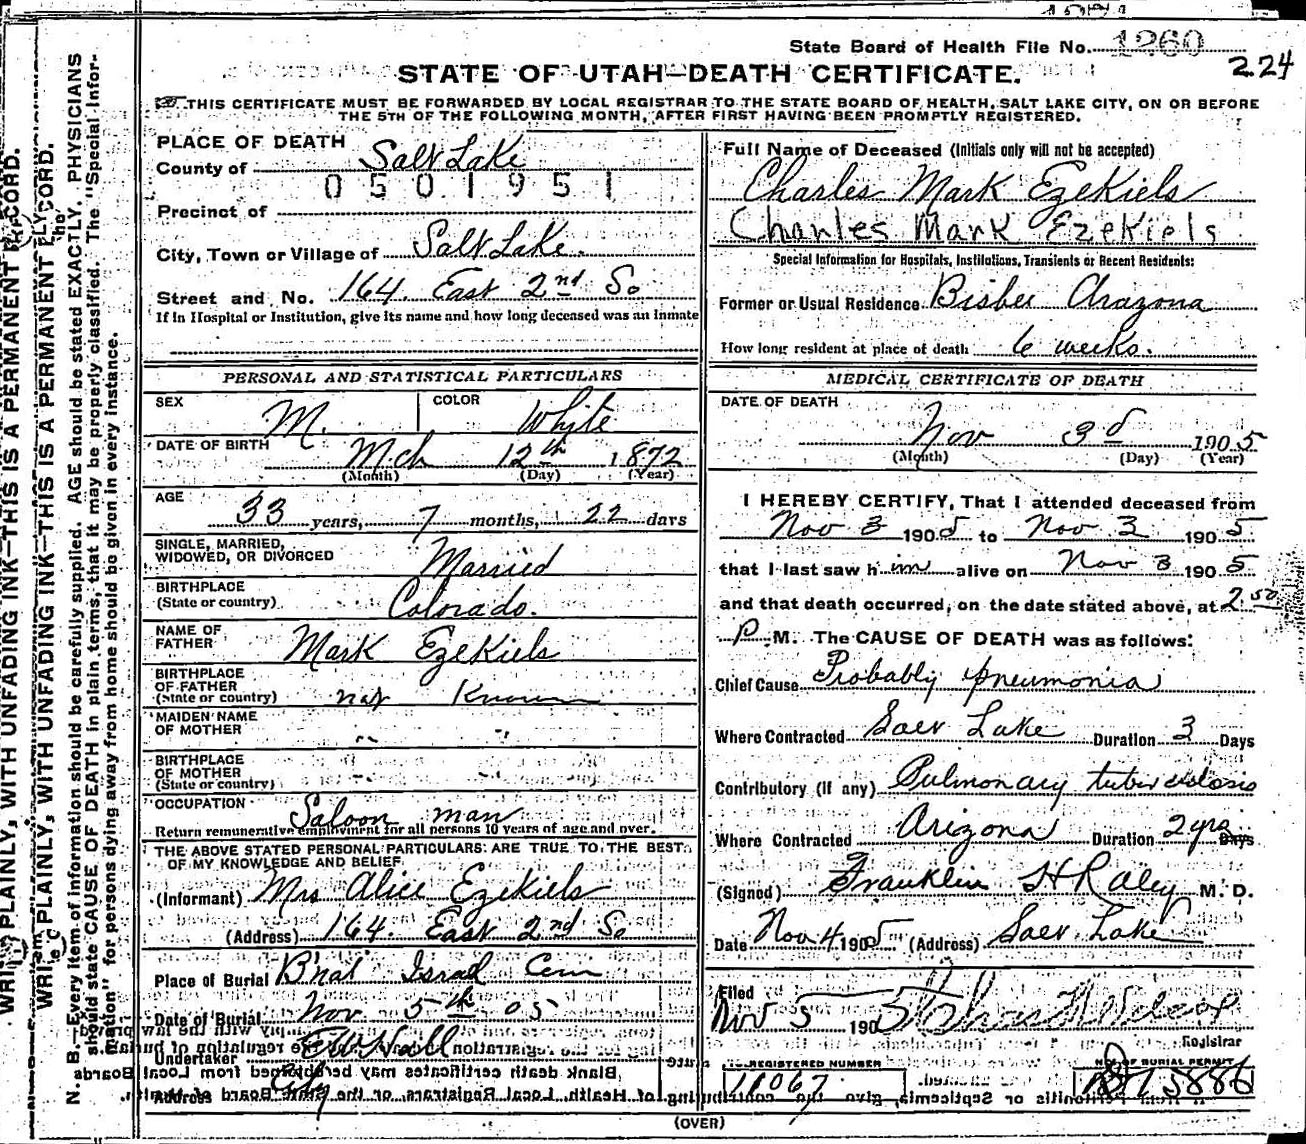 State Board of Health File No. 1260
224
STATE OF UTAH—DEATH CERTIFICATE.
THIS CERTIFICATE MUST BE FORWARDED BY LOCAL REGISTRAR TO THE STATE BOARD OF HEALTH, SALT LAKE CITY, ON OR BEFORE
THE 5TH OF THE FOLLOWING MONTH, AFTER FIRST HAVING BEEN PROMPTLY REGISTERED.
PLACE OF DEATH
County of Salt Lake
0501951
Precinct of
City, Town or Village of Salt Lake.
Street and No. 164. East 2nd So
If in Hospital or Institution, give its name and how long deceased was an inmate
PERSONAL AND STATISTICAL PARTICULARS
SEX M. COLOR White
DATE OF BIRTH Mch 12th 1872
(Month) (Day) (Year)
AGE 33 years, 7 months, 22 days
SINGLE, MARRIED,
WIDOWED, OR DIVORCED Married
BIRTHPLACE
(State or country) Colorado.
NAME OF
FATHER Mark Ezekiels
BIRTHPLACE
OF FATHER
(State or country) not Known
MAIDEN NAME
OF MOTHER " "
BIRTHPLACE
OF MOTHER
(State or country) " "
OCCUPATION Saloon man
Return remunerative employment for all persons 10 years of age and over.
THE ABOVE STATED PERSONAL PARTICULARS ARE TRUE TO THE BEST
OF MY KNOWLEDGE AND BELIEF
(Informant) Mrs Alice Ezekiels
(Address) 164. East 2nd So
Place of Burial B'nai Israel Cem
Date of Burial Nov 5th 05
Undertaker E W Hall
Address City
Full Name of Deceased (Initials only will not be accepted)
Charles Mark Ezekiels
Charles Mark Ezekiels
Special Information for Hospitals, Institutions, Transients or Recent Residents:
Former or Usual Residence Bisbee Arazona
How long resident at place of death 6 weeks.
MEDICAL CERTIFICATE OF DEATH
DATE OF DEATH
Nov 3d 1905
(Month) (Day) (Year)
I HEREBY CERTIFY, That I attended deceased from
Nov 3 1905 to Nov 3 1905
that I last saw him alive on Nov 3 1905
and that death occurred, on the date stated above, at 2 50
P M. The CAUSE OF DEATH was as follows:
Chief Cause Probably pneumonia
Where Contracted Salt Lake Duration 3 Days
Contributory (if any) Pulmonary tuberculosis
Where Contracted Arizona Duration 2 yrs Days
(Signed) Franklin H Raley M. D.
Date Nov 4 1905 (Address) Salt Lake
Filed
Nov 5 1905
Registrar
REGISTERED NUMBER
11067
NO. OF BURIAL PERMIT
(OVER)
WRITE PLAINLY, WITH UNFADING INK—THIS IS A PERMANENT RECORD.
WRITE PLAINLY, WITH UNFADING INK—THIS IS A PERMANENT RECORD.
N. B. Every item of information should be carefully supplied. AGE should be stated EXACTLY. PHYSICIANS
should state CAUSE OF DEATH in plain terms, that it may be properly classified. The "Special Infor-
mation" for persons dying away from home should be given in every instance.